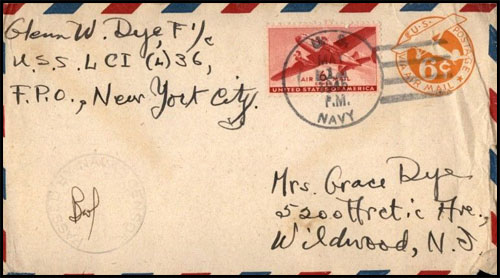 Glenn W. Dye, F 1/c
U.S.S. LCI (L) 36,
F.P.O., New York City.
AIR 6¢ MAIL
UNITED STATES OF AMERICA
U.S.
P.M.
NAVY
U.S. POSTAGE
6¢
VIA AIR MAIL
Mrs. Grace Dye
5200 Arctic Ave.,
Wildwood, N.J